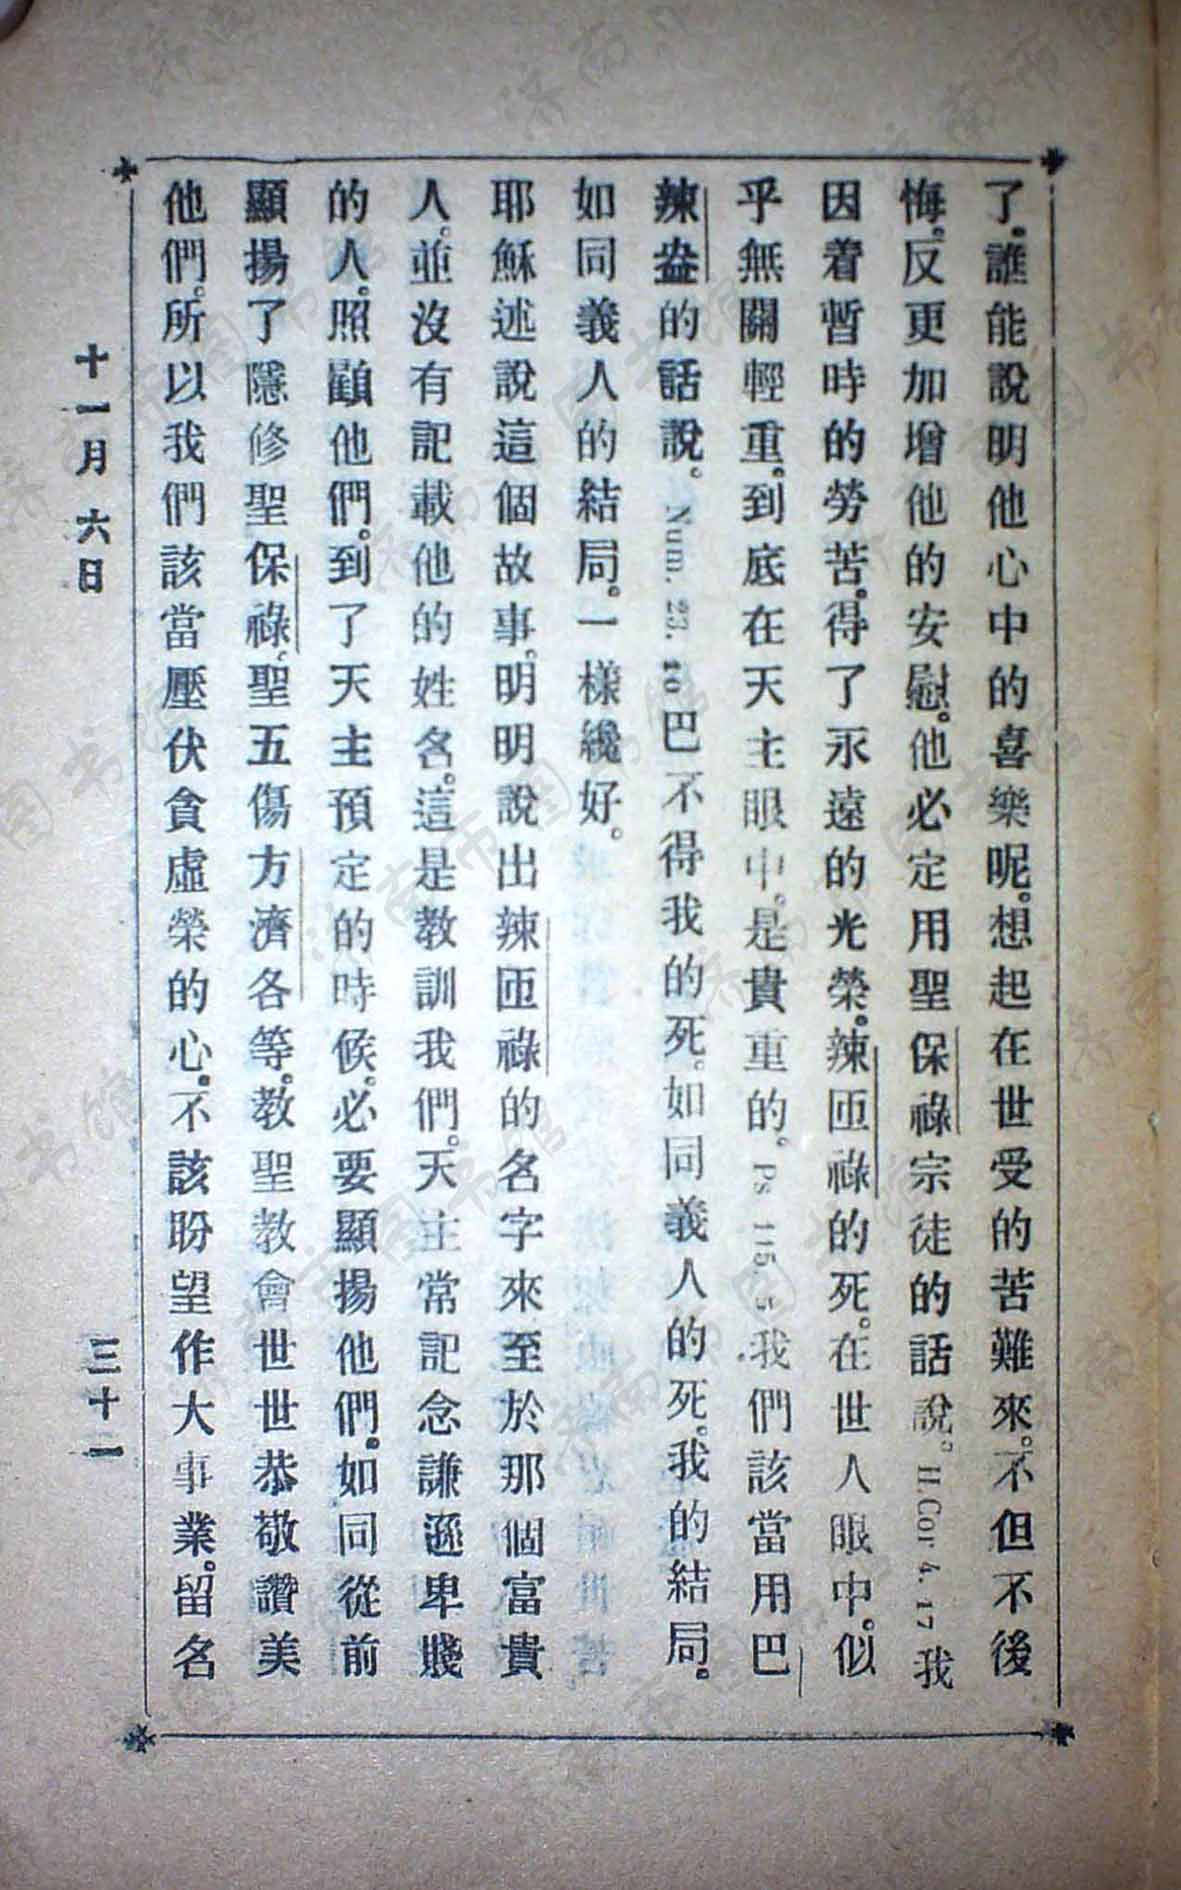 了。誰能說明他心中的喜樂呢。想起在世受的苦難來。不但不後
悔。反更加增他的安慰。他必定用聖保祿宗徒的話說。II.Cor 4. 17 我
因着暫時的勞苦。得了永遠的光榮。辣匝祿的死。在世人眼中。似
乎無關輕重。到底在天主眼中。是貴重的。Ps 115. 5 我們該當用巴
辣盎的話說。Num. 23. 10 巴不得我的死。如同義人的死。我的結局。
如同義人的結局。一樣纔好。
耶穌述說這個故事。明明說出辣匝祿的名字來至於那個富貴
人。並沒有記載他的姓名。這是教訓我們。天主常記念謙遜卑賤
的人。照顧他們。到了天主預定的時候。必要顯揚他們。如同從前
顯揚了隱修聖保祿。聖五傷方濟各等。教聖教會世世恭敬讚美
他們。所以我們該當壓伏貪虛榮的心。不該盼望作大事業。留名
十一月六日
三十一
济南市图书馆